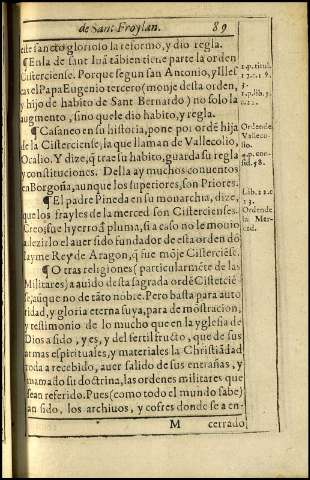 de Sant Froylan. 89
este sancto glorioso la reformo, y dio regla.
¶ En la de sant Iuã tãbien tiene parte la orden
Cisterciense. Porque segun san Antonio, y Illes
cas el Papa Eugenio tercero (monje desta orden,
y hijo de habito de Sant Bernardo) no solo la
augmento, sino que le dio habito, y regla.
¶ Casaneo en su historia, pone por ordẽ hija
de la Cisterciense, la que llaman de Vallecolio,
Ocalio. Y dize, q̃ trae su habito, guarda su regla
y constituciones. Della ay muchos conuentos
en Borgoña, aunque los superiores, son Priores.
¶ El padre Pineda en su monarchia, dize,
que los frayles de la merced son Cistercienses.
Creo, fue hyerro d̃ pluma, si a caso no le mouio
a dezirlo el auer sido fundador de esta orden dõ
Iayme Rey de Aragon, q̃ fue mõje Cisterciẽse.
¶ O tras religiones (particularmẽte de las
Militares) a auido desta sagrada ordẽ Cistercié
se, aũque no de tãto nobre. Pero basta para auto
ridad, y gloria eterna suya, para demostracion,
y testimonio de lo mucho que en la yglesia de
Dios a sido, y es, y del fertil fructo, que de sus
armas espirituales, y materiales la Christiãdad
toda a recebido, auer salido de sus entrañas, y
mamado su doctrina, las ordenes militares que
sean referido. Pues (como todo el mundo sabe)
an sido, los archiuos, y cofres donde se a en-
M cerrado
1.p. titul.
3.
Orden de
Valleco-
lio.
4.p. con-
sid. 58.
Lib. 12. c
13.
Ordende
la Mer-
ced.